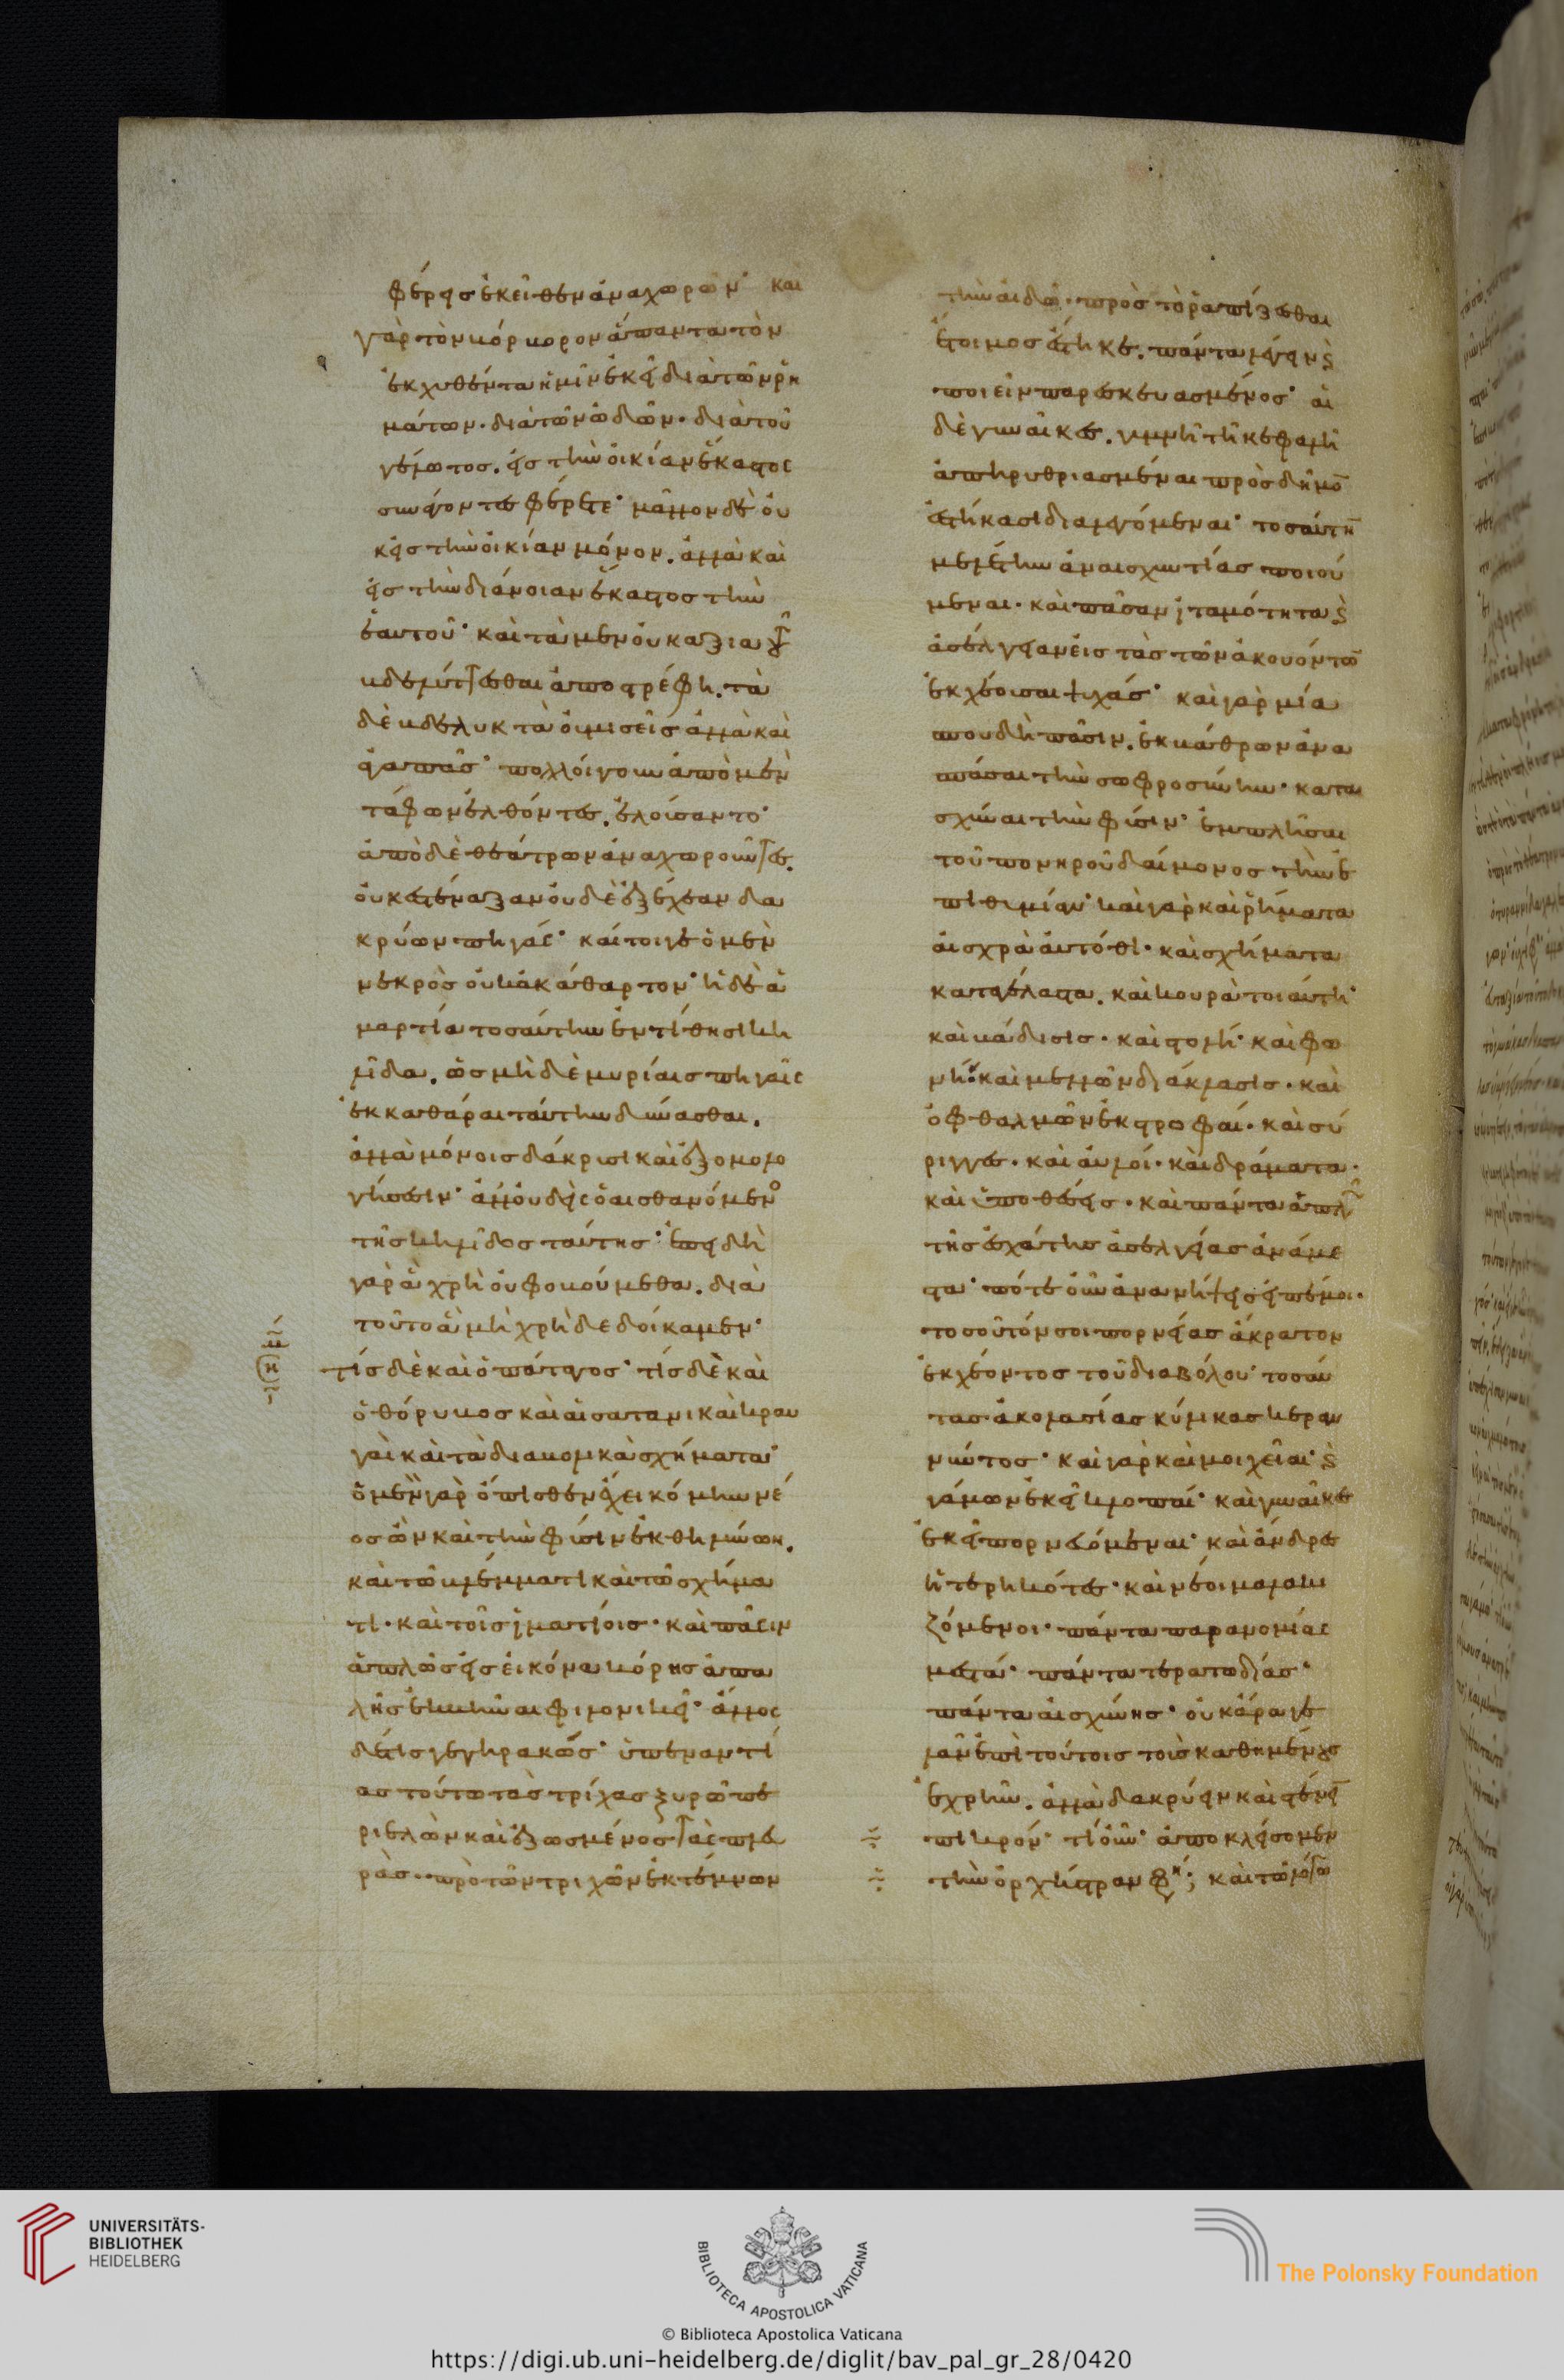 φέρεις ἐκεῖθεν ἀναχωρῶν· καὶ
γὰρ τὸν βόρβορον ἅπαντα τὸν
ἐκχυθέντα ἡμῖν ἐκεῖ διὰ τῶν ῥη
μάτων· διὰ τῶν ὠδῶν· διὰ τοῦ
γέλωτος. εἰς τὴν οἰκίαν ἕκαστος
συνάγοντες φέρετε· μᾶλλον δὲ οὐ
κ εἰς τὴν οἰκίαν μόνον. ἀλλὰ καὶ
εἰς τὴν διάνοιαν ἕκαστος τὴν
ἑαυτοῦ· καὶ τὰ μὲν οὐκ ἄξια τοῦ
βδελύττεσθαι ἀποστρέφη. τὰ
δὲ βδελυκτὰ οὐ μισεῖς ἀλλὰ καὶ
ἀγαπᾶς· πολλοί γουν ἀπὸ μὲν
τάφων ἐλθόντες. ἐλούσαντο·
ἀπὸ δὲ θεάτρων ἀναχωροῦντες.
οὐκ ἐστέναξαν οὐδὲ ἐξέχεαν δα
κρύων πηγάς· καίτοι γε ὁ μὲν
νεκρὸς οὐκ ἀκάθαρτον· ἡ δὲ ἁ
μαρτία τοσαύτην ἐντίθησι κη
λῖδα. ὡς μὴ δὲ μυρίαις πηγαῖς
ἐκκαθάραι ταύτην δύνασθαι.
ἀλλὰ μόνοις δάκρυσι καὶ ἐξομολο
γήσεσιν· ἀλλ' οὐδεὶς ὁ αἰσθανόμενος
τῆς κηλῖδος ταύτης· ἐπειδὴ
γὰρ ἃ χρὴ οὐ φοβούμεθα. διὰ
τοῦτο ἃ μὴ χρὴ δεδοίκαμεν·
τίς δὲ καὶ ὁ πάταγος· τίς δὲ καὶ
ὁ θόρυβος καὶ αἱ σατανικαὶ κραυ
γαὶ καὶ τὰ διαβολικὰ σχήματα·
ὁ μὲν γὰρ ὄπισθεν ἔχει κόμην νέ
ος ὢν καὶ τὴν φύσιν ἐκθηλύνων.
καὶ τῶ βλέμματι καὶ τῶ σχήμα
τι· καὶ τοῖς ἱματίοις· καὶ πᾶσιν
ἁπλῶς εἰς εἰκόνα κόρης ἁπα
λῆς ἐκβῆναι φιλονικεῖ· ἄλλος
δέ τις γεγηρακὼς· ὑπεναντί
ας τούτω τὰς τρίχας ξυρῶ πε
ριελὼν καὶ ἐζωσμένος τὰς πλευ
ρὰς· πρὸ τῶν τριχῶν ἐκτέμνων
τὴν αἰδῶ· πρὸς τὸ ῥαπίζεσθαι
ἕτοιμος ἕστηκε. πάντα λέγειν καὶ
ποιεῖν παρεσκευασμένος· αἱ
δὲ γυναῖκες. γυμνῆ τῆ κεφαλῆ
ἀπηρυθριασμέναι πρὸς δῆμον
ἑστήκασι διαλεγόμεναι· τοσαύτην
μελέτην ἀναισχυντίας ποιού
μεναι· καὶ πᾶσαν ἰταμότητα καὶ
ἀσέλγειαν εἰς τὰς τῶν ἀκουόντων
ἐκχέουσαι ψυχάς· καὶ γὰρ μία
σπουδὴ πᾶσιν. ἐκ βάθρων ἀνα
σπάσαι τὴν σωφροσύνην· κατα
σχύναι τὴν φύσιν· ἐμπλῆσαι
τοῦ πονηροῦ δαίμονος τὴν ἐ
πιθυμίαν· καὶ γὰρ καὶ ῥήματα
αἰσχρὰ αὐτόθι· καὶ σχήματα
καταγέλαστα. καὶ κουρὰ τοιαύτη·
καὶ βάδισις· καὶ στολή· καὶ φω
νή· καὶ μελῶν διάκλασις· καὶ
ὀφθαλμῶν ἐκστροφαί· καὶ σύ
ριγγες· καὶ αὐλοί· καὶ δράματα·
καὶ ὑποθέσεις· καὶ πάντα ἁπλῶς
τῆς ἐσχάτης ἀσελγείας ἀνάμε
στα· πότε οὖν ἀνανήψεις εἰπέ μοι·
τοσοῦτόν σοι πορνείας ἄκρατον
ἐκχέοντος τοῦ διαβόλου· τοσαύ
τας ἀκολασίας κύλικας κεραν
νύντος· καὶ γὰρ καὶ μοιχεῖαι· καὶ
γάμων ἐκεῖ κλοπαί· καὶ γυναῖκες
ἐκεῖ πορνευόμεναι· καὶ ἄνδρες
ἡτερηκότες· καὶ νέοι μαλακι
ζόμενοι· πάντα παρανομίας
μεστά· πάντα τερατωδίας·
πάντα αἰσχύνης· οὐκ ἄρα γε
λᾶν ἐπὶ τούτοις τοὺς καθημένους
ἐχρῆν. ἀλλὰ δακρύειν καὶ στένειν
πικρόν· τί οὖν· ἀποκλείσομεν
τὴν ὀρχήστραν φησί; καὶ τῶ λόγω
UNIVERSITÄTS-
BIBLIOTHEK
HEIDELBERG
BIBLIOTECA APOSTOLICA VATICANA
The Polonsky Foundation
© Biblioteca Apostolica Vaticana
https://digi.ub.uni-heidelberg.de/diglit/bav_pal_gr_28/0420